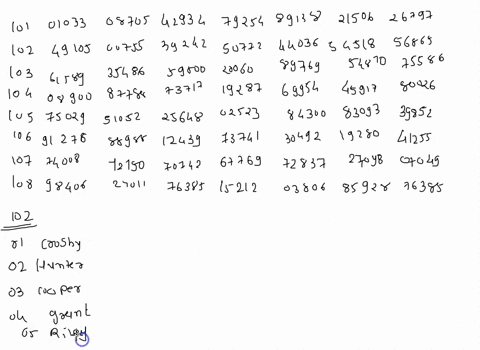 101 01033 08705 42934 79254 89138 21506 26797
102 49105 00755 39242 50772 44036 54518 56865
103 61589 35486 59500 20060 89769 54870 75586
104 08900 87788 73717 19287 69954 45917 80026
105 75029 51052 25648 02523 84300 83093 39852
106 91276 88988 12439 73741 30492 19280 41255
107 74008 72750 70742 67769 72837 27098 07049
108 98406 27011 76385 15212 03806 85928 76385
102
01 Crosby
02 Hunter
03 Cooper
04 grant
05